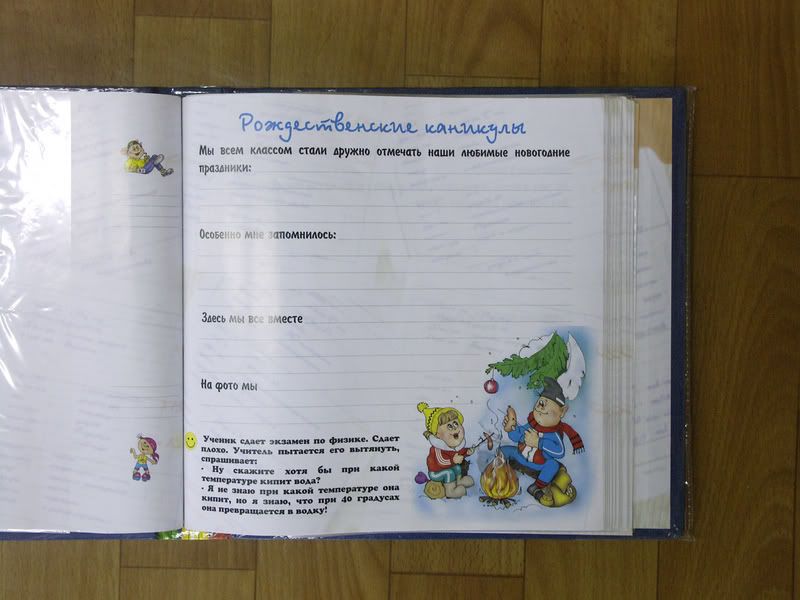 Рождественские каникулы
Мы всем классом стали дружно отмечать наши любимые новогодние
праздники:
Особенно мне запомнилось:
Здесь мы все вместе
На фото мы
Ученик сдает экзамен по физике. Сдает
плохо. Учитель пытается его вытянуть,
спрашивает:
- Ну скажите хотя бы при какой
температуре кипит вода?
- Я не знаю при какой температуре она
кипит, но я знаю, что при 40 градусах
она превращается в водку!